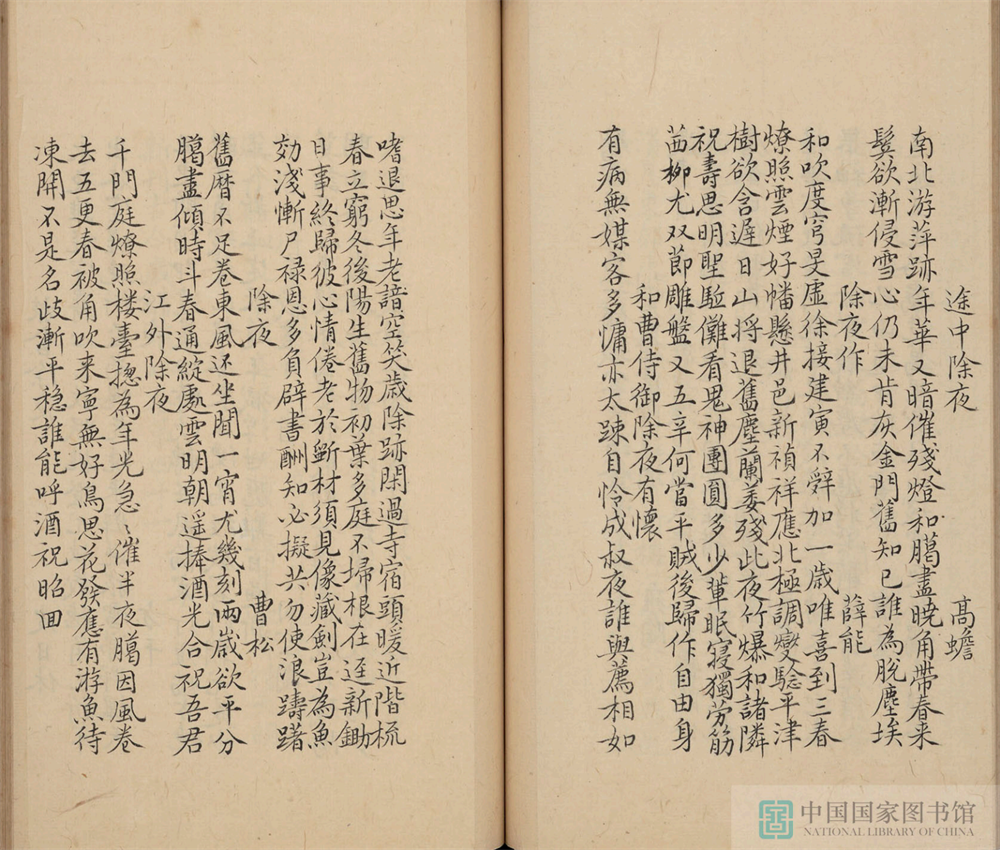 途中除夜 高蟾
南北游萍跡年華又暗催殘燈和臈盡曉角帶春来
髮欲漸侵雪心仍未肯灰金門舊知已誰為脫塵埃
除夜作 薛能
和吹度穹旻虛徐接建寅不辤加一歲唯喜到三春
燎照雲煙好幡懸井邑新禎祥應北極調燮驗平津
樹欲含遲日山將退舊塵蘭萎殘此夜竹爆和諸隣
祝壽思明聖駈儺看鬼神團圓多少輩眠寢獨劳筋
茜柳尤双莭雕盤又五辛何當平賊後歸作自由身
和曹侍御除夜有懷
有病無媒客多慵亦太踈自怜成叔夜誰與薦相如
嗜退思年老諳空笑歲除跡閑過寺宿頭暖近階梳
春立窮冬後陽生舊物初葉多庭不埽根在逕新鋤
日事終歸彼心情倦老於斲材須見像藏劍豈為魚
効淺慚尸禄恩多負辟書酬知必擬共勿使浪躊躇
除夜 曹松
舊曆不足卷東風还坐聞一宵尤幾刻兩歲欲平分
臈盡傾時斗春通綻處雲明朝遥捧酒光合祝吾君
江外除夜
千門庭燎照楼臺揔為年光急〻催半夜臈因風卷
去五更春被角吹来寧無好鳥思花發應有游魚待
凍開不是名歧漸平稳誰能呼酒祝昭囬
中国国家图书馆
NATIONAL LIBRARY OF CHINA